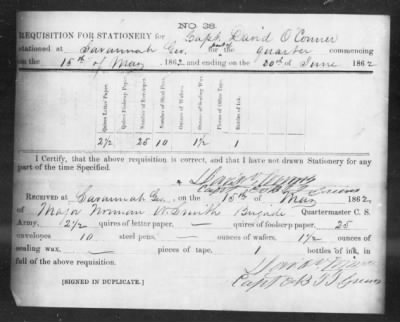 NO. 38.
REQUISITION FOR STATIONERY for Capt. David O'Conner
stationed at Savannah Geo. for the part of Quarter commencing
on the 15th of May 1862, and ending on the 30th of June 1862
Quires Letter Paper. Quires Foolscap Paper. Number of Envelopes. Number of Steel Pens. Ounces of Wafers. Ounces of Sealing Wax. Pieces of Office Tape. Bottles of Ink.
2½ 25 10 1½ 1
I Certify, that the above requisition is correct, and that I have not drawn Stationery for
any part of the time Specified
RECEIVED at Savannah Geo. on the 15th of May 1862,
of Major Norman W. Smith Brigade Quartermaster C. S.
Army, 2½ quires of letter paper, — quires of foolscap paper, 25
envelopes 10 steel pens, — ounces of wafers, 1½ ounces of
sealing wax, — pieces of tape, 1 bottles of ink, in
full of the above requisition.
Capt
[SIGNED IN DUPLICATE.]